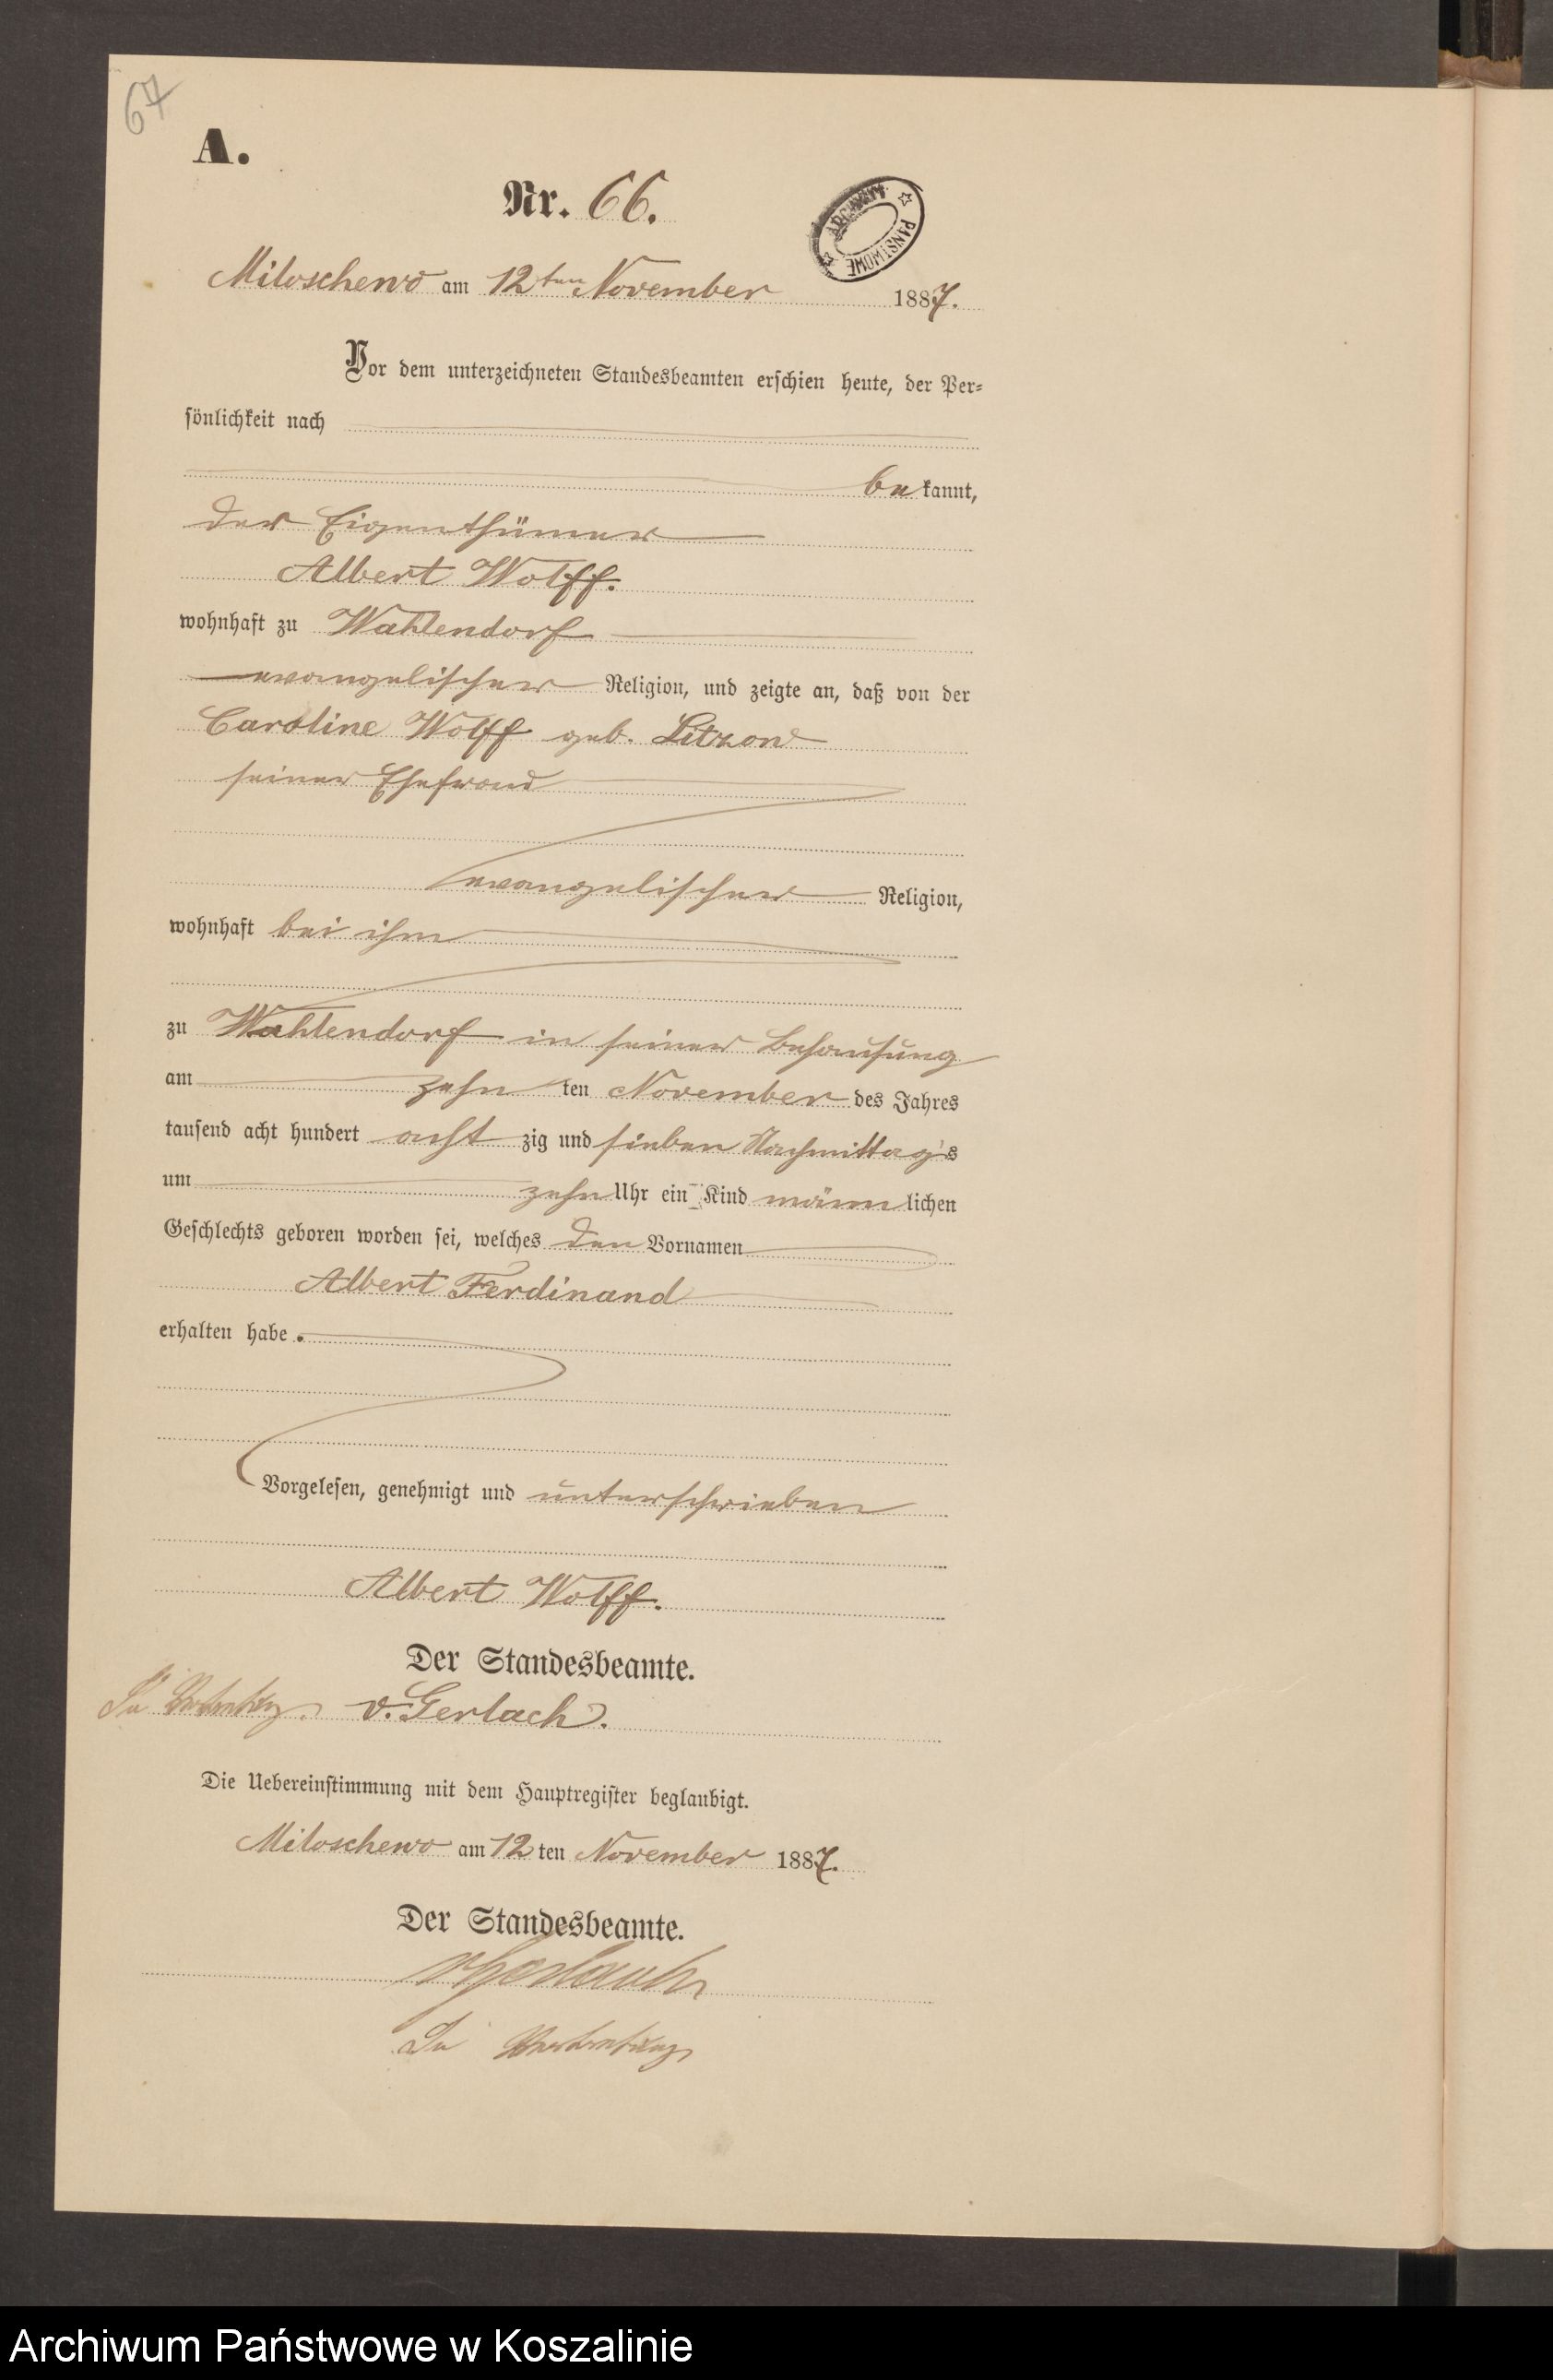 67
A.
Nr. 66.
ARCHIWUM PAŃSTWOWE
Miloschewo am 12ten November 1887.
Vor dem unterzeichneten Standesbeamten erschien heute, der Per-
sönlichkeit nach
bekannt,
der Eigenthümer
Albert Wolff.
wohnhaft zu Wahlendorf
evangelischer Religion, und zeigte an, daß von der
Caroline Wolff geb. Litzow
seiner Ehefrau
evangelischer Religion,
wohnhaft bei ihm
zu Wahlendorf in seiner Behausung
am zehn ten November des Jahres
tausend acht hundert acht zig und sieben Nachmittags
um zehn Uhr ein Kind männlichen
Geschlechts geboren worden sei, welches den Vornamen
Albert Ferdinand
erhalten habe.
Vorgelesen, genehmigt und unterschrieben
Albert Wolff.
Der Standesbeamte.
In Vertretung. v. Gerlach.
Die Uebereinstimmung mit dem Hauptregister beglaubigt.
Miloschewo am 12 ten November 1887.
Der Standesbeamte.
vGerlach
In Vertretung
Archiwum Państwowe w Koszalinie